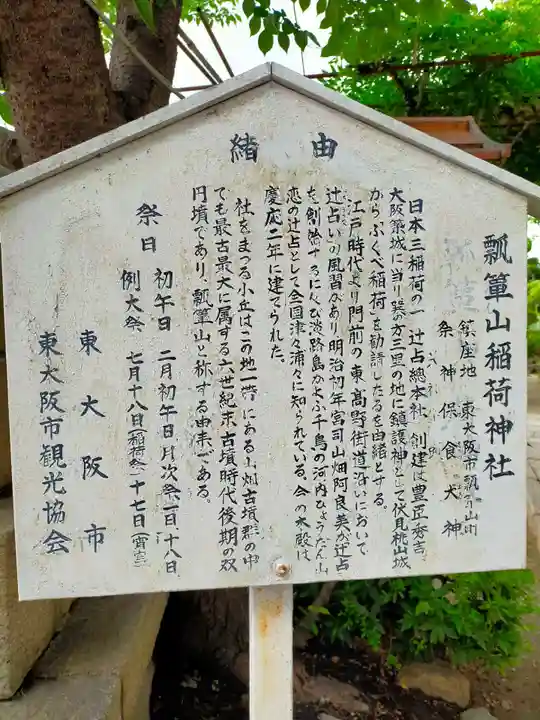 由緒
瓢箪山稲荷神社
鎮座地 東大阪市瓢箪山町
祭神 保食大神
日本三稲荷の一 辻占総本社 創建は豊臣秀吉
大阪築城に当り巽の方三里の地に鎮護神として伏見桃山城
から ふくべ稲荷 を勧請したるを由緒とする。
江戸時代より門前の東高野街道沿いにおいて
辻占いの風習があり明治初年宮司山畑阿良美が辻占
を創始するに及び淡路島かよふ千鳥の河内ひょうたん山
恋の辻占として全国津々浦々に知られている。今の本殿は
慶応二年に建てられた。
社をまつる小丘はこの地一帯にある山畑古墳群の中
でも最古最大に属する六世紀末古墳時代後期の双
円墳であり、瓢箪山と称する由来である。
祭日 初午日 二月初午日 月次祭 一日、十八日
例大祭 七月十八日(稲荷祭)十七日(宵宮)
東大阪市
東大阪市観光協会